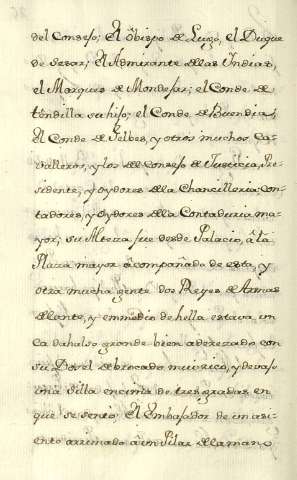 del Consejo; El obispo de Lugo, el Duque
de Sesar; El Admirante delas Indias,
el Marques de Mondejar; el Conde de
tendilla su hijo; el Conde de Buendia;
El Conde de Gelbes, y otros muchos Ca-
valleros, y los del Consejo de Justicia, Pre-
sidente, y oydores dela Chancilleria; con-
tadores, y oydores dela Contaduria ma-
yor; su Alteza fue desde Palacio, a la
Plaza mayor acompañado de esta, y
otra mucha gente dos Reyes de Armas
delante, y en medio de hella estava un
cadahalso grande bien aderezado con
su Dosel de brocado muy rico, y devajo
una silla encima de tres gradas en
que se sento, El Embajador de un asi-
ento arrimado a un Pilar dela mano